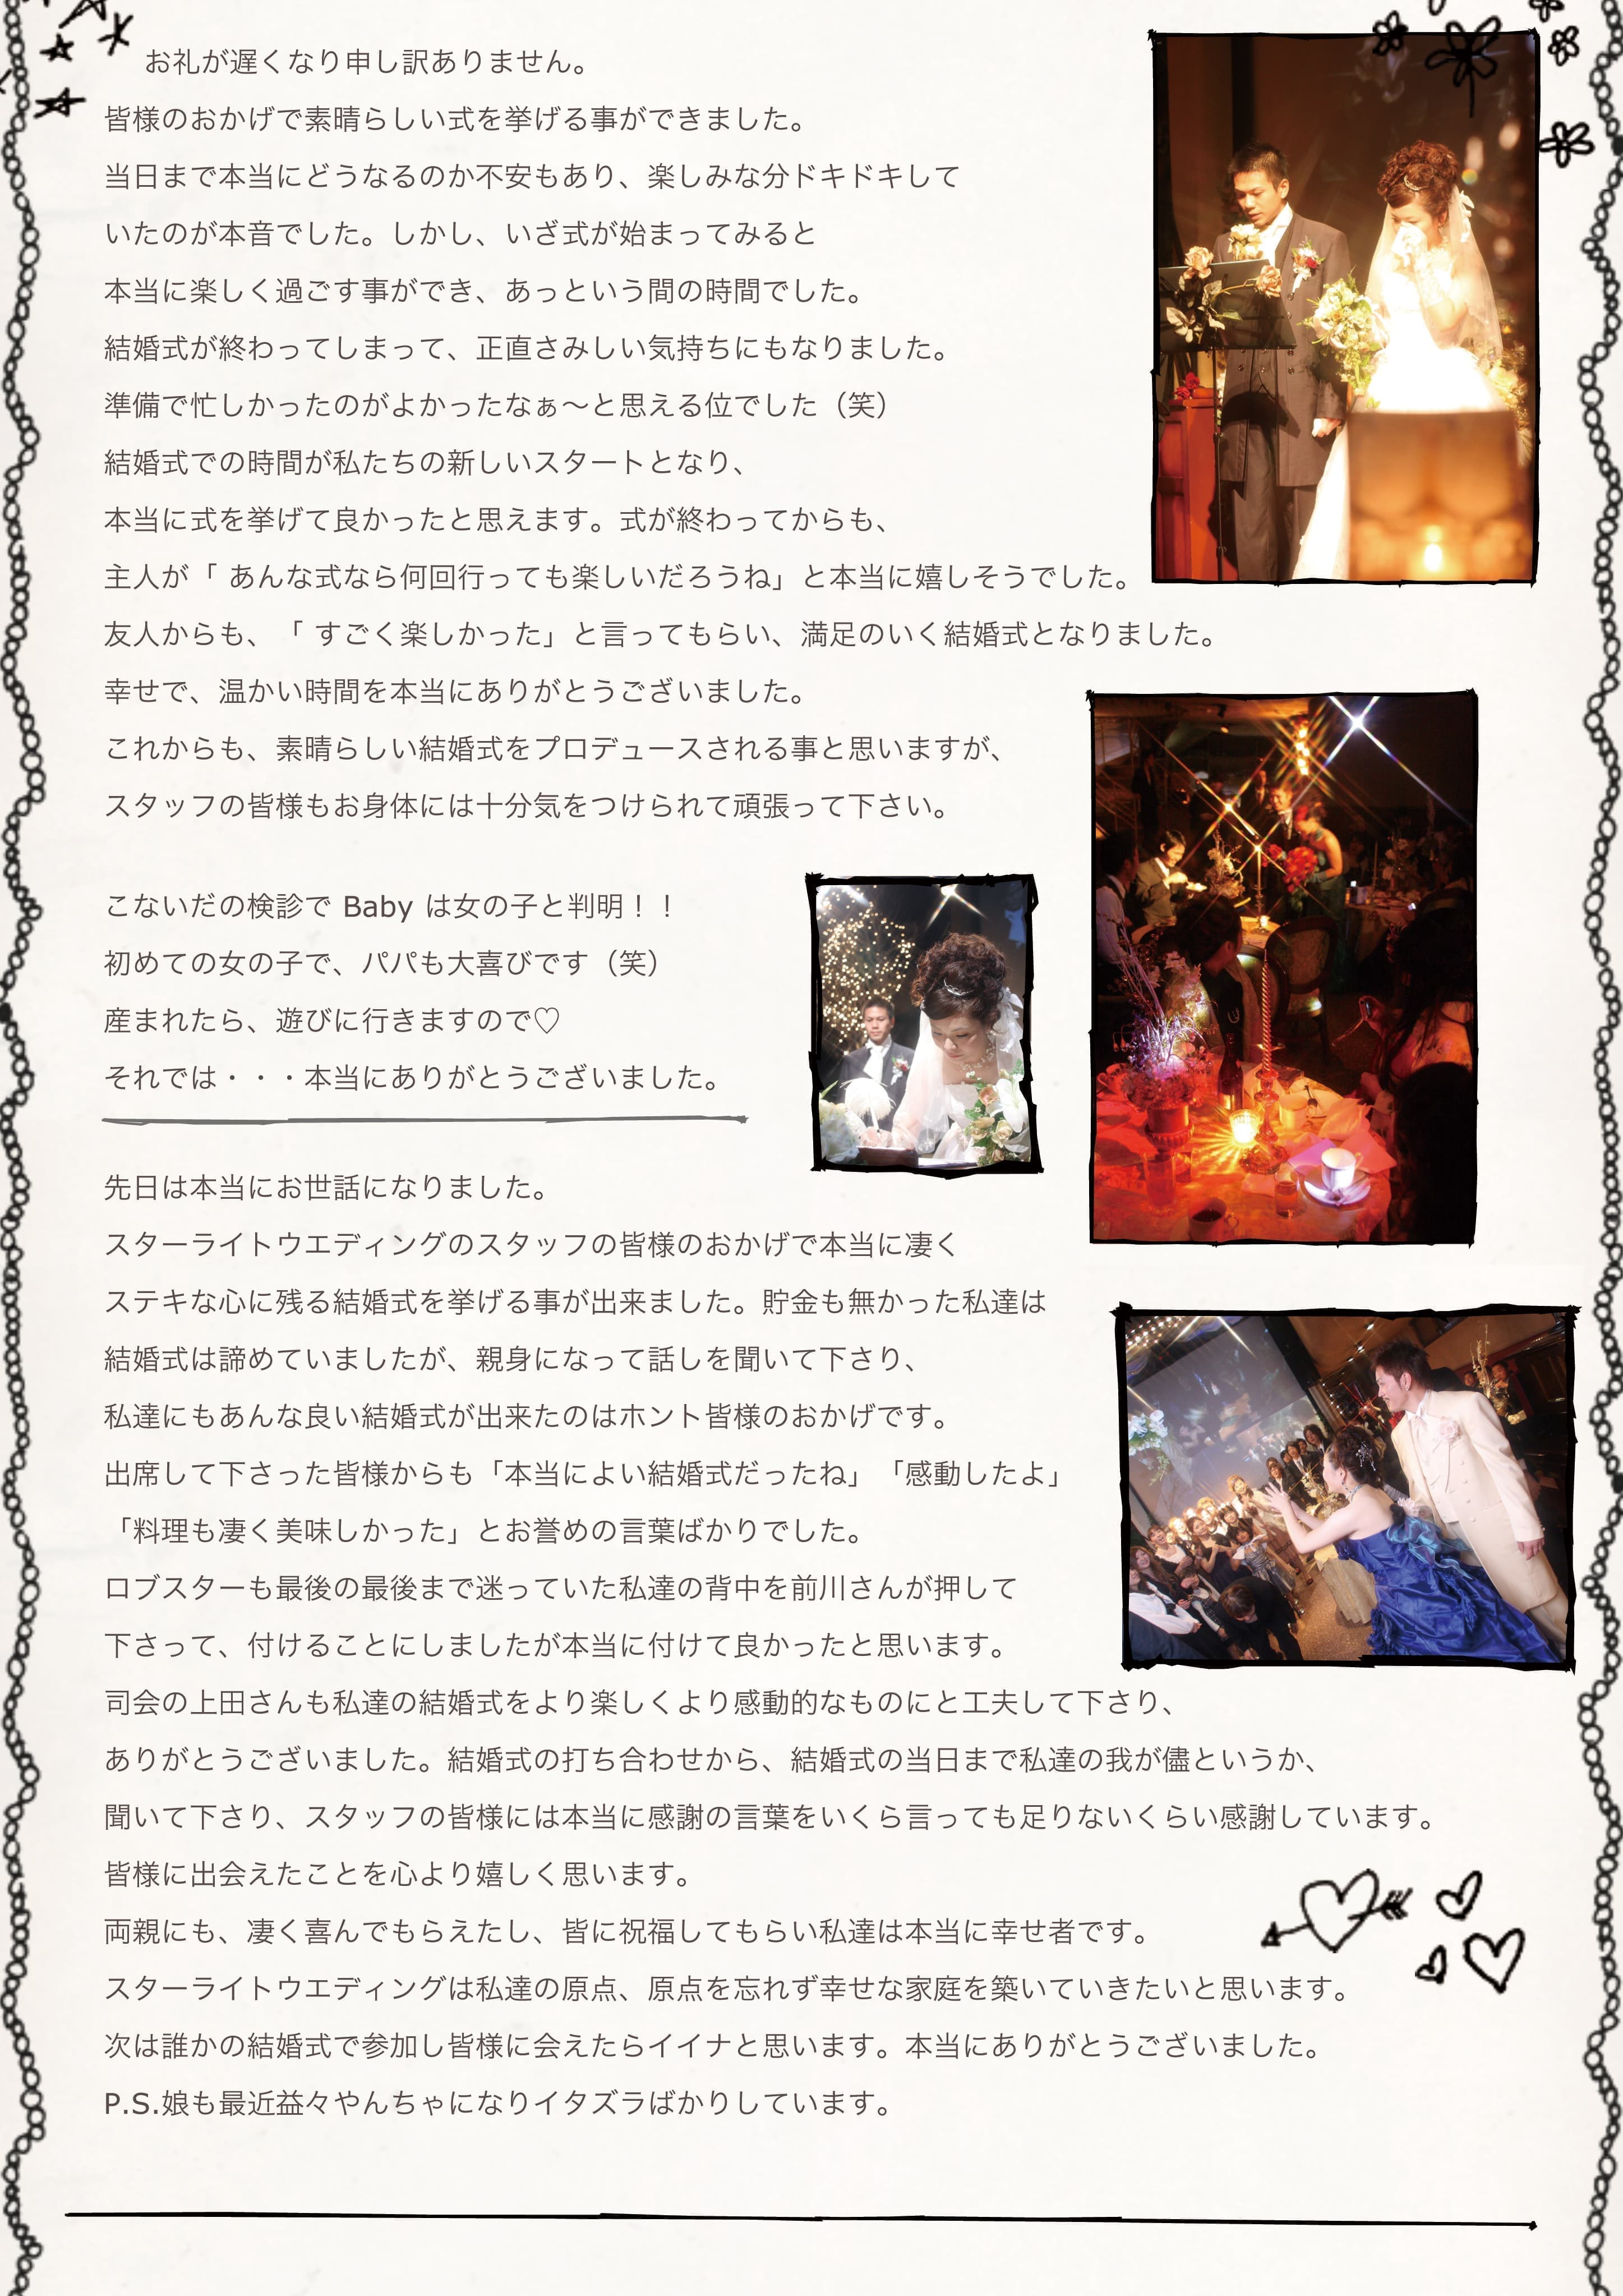 お礼が遅くなり申し訳ありません。
皆様のおかげで素晴らしい式を挙げる事ができました。
当日まで本当にどうなるのか不安もあり、楽しみな分ドキドキして
いたのが本音でした。しかし、いざ式が始まってみると
本当に楽しく過ごす事ができ、あっという間の時間でした。
結婚式が終わってしまって、正直さみしい気持ちにもなりました。
準備で忙しかったのがよかったなぁ〜と思える位でした（笑）
結婚式での時間が私たちの新しいスタートとなり、
本当に式を挙げて良かったと思えます。式が終わってからも、
主人が「 あんな式なら何回行っても楽しいだろうね」と本当に嬉しそうでした。
友人からも、「 すごく楽しかった」と言ってもらい、満足のいく結婚式となりました。
幸せで、温かい時間を本当にありがとうございました。
これからも、素晴らしい結婚式をプロデュースされる事と思いますが、
スタッフの皆様もお身体には十分気をつけられて頑張って下さい。
こないだの検診で Baby は女の子と判明！！
初めての女の子で、パパも大喜びです（笑）
産まれたら、遊びに行きますので♡
それでは・・・本当にありがとうございました。
先日は本当にお世話になりました。
スターライトウエディングのスタッフの皆様のおかげで本当に凄く
ステキな心に残る結婚式を挙げる事が出来ました。貯金も無かった私達は
結婚式は諦めていましたが、親身になって話しを聞いて下さり、
私達にもあんな良い結婚式が出来たのはホント皆様のおかげです。
出席して下さった皆様からも「本当によい結婚式だったね」「感動したよ」
「料理も凄く美味しかった」とお誉めの言葉ばかりでした。
ロブスターも最後の最後まで迷っていた私達の背中を前川さんが押して
下さって、付けることにしましたが本当に付けて良かったと思います。
司会の上田さんも私達の結婚式をより楽しくより感動的なものにと工夫して下さり、
ありがとうございました。結婚式の打ち合わせから、結婚式の当日まで私達の我が儘というか、
聞いて下さり、スタッフの皆様には本当に感謝の言葉をいくら言っても足りないくらい感謝しています。
皆様に出会えたことを心より嬉しく思います。
両親にも、凄く喜んでもらえたし、皆に祝福してもらい私達は本当に幸せ者です。
スターライトウエディングは私達の原点、原点を忘れず幸せな家庭を築いていきたいと思います。
次は誰かの結婚式で参加し皆様に会えたらイイナと思います。本当にありがとうございました。
P.S.娘も最近益々やんちゃになりイタズラばかりしています。